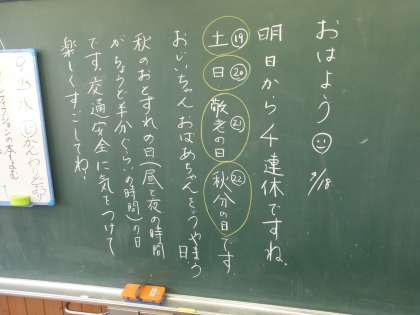 おはよう 9/18
明日から4連休ですね。
土⑲ 日⑳ 敬老の日㉑ 秋分の日㉒ です
おじいちゃんおばあちゃんをうやまう日
秋のおとずれの日(昼と夜の時間
がちょうど半分ぐらいの時間)の日
です。交通安全に気をつけて
楽しくすごしてね!